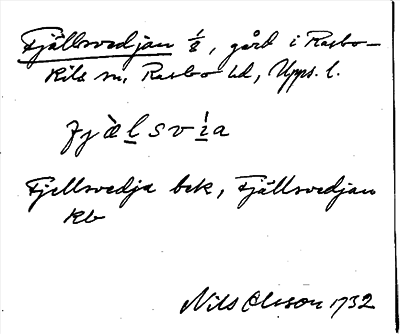 Fjällsvedjan 1/8, gård i Rasbo-
Kils sn, Rasbo hd, Upps. l.
fjæ̀l̲sví̲a
Fjellsvedja bek, Fjällsvedjan
Kb
Nils Olsson 1732